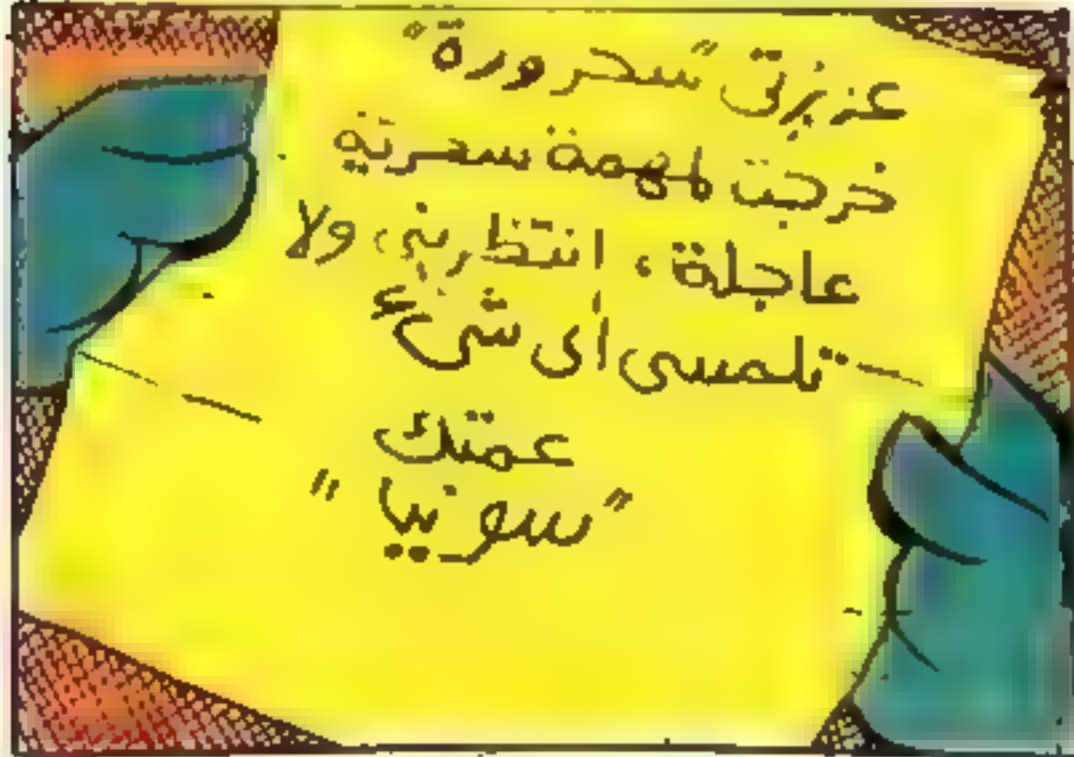 عزيزتى "سحرورة"
خرجت لمهمة سحرية
عاجلة، انتظرينى، ولا
تلمسى أى شىء
عمتك
"سونيا"